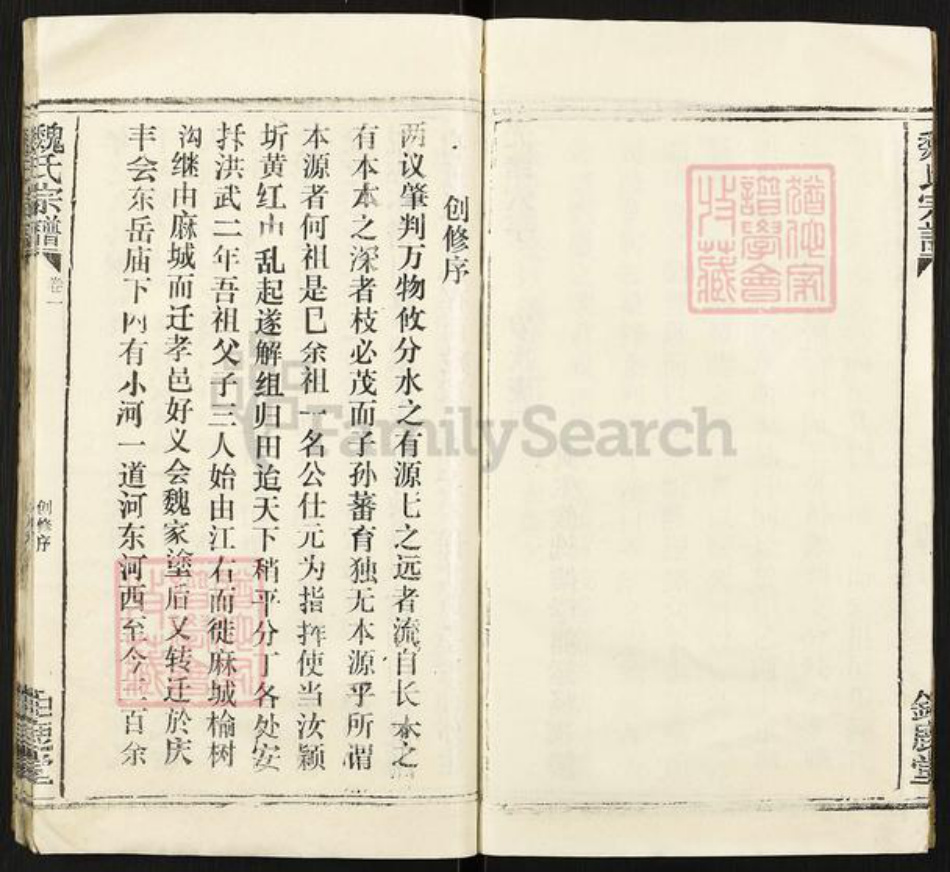 创修序
两议肇判万物攸分水之有源七之远者流自长木之
有本本之深者枝必茂而子孙蕃育独无本源乎所谓
本源者何祖是已余祖一名公仕元为指挥使当汝颖
圻黄红巾乱起遂解组归田迨天下稍平分丁各处安
挊洪武二年吾祖父子三人始由江右而徙麻城榆树
沟继由麻城而迁孝邑好义会魏家塗后又转迁於庆
丰会东岳庙下内有小河一道河东河西至今二百余
魏氏宗谱
卷一
创修序
钜鹿堂
猶他家譜學會收藏
猶他家譜學會收藏
FamilySearch